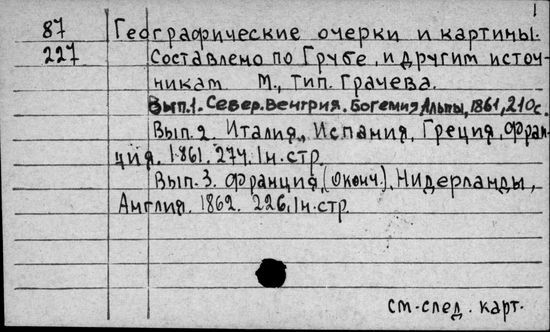 1
87 Географические очерки и картины.
227 Составлено по Грубе, и другим источ-
никам М., тип. Грачева.
Вып.1. Север. Венгрия. Богемия Альпы, 1861, 210с.
Вып.2. Италия, Испания, Греция, Фран-
ция. 1861. 274. 1н.стр.
Вып.3. Франция, (Оконч.), Нидерланды,
Англия. 1862. 226, 1н.стр.
см-след. карт.